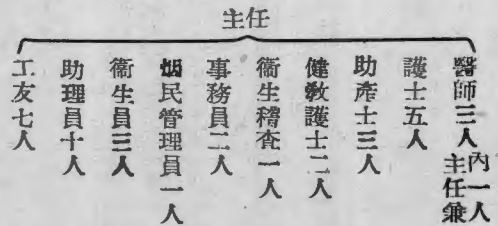 主任
醫師三人內一人主任兼
護士五人
助產士三人
健教護士二人
衞生稽查一人
事務員二人
烟民管理員一人
衞生員三人
助理員十人
工友七人